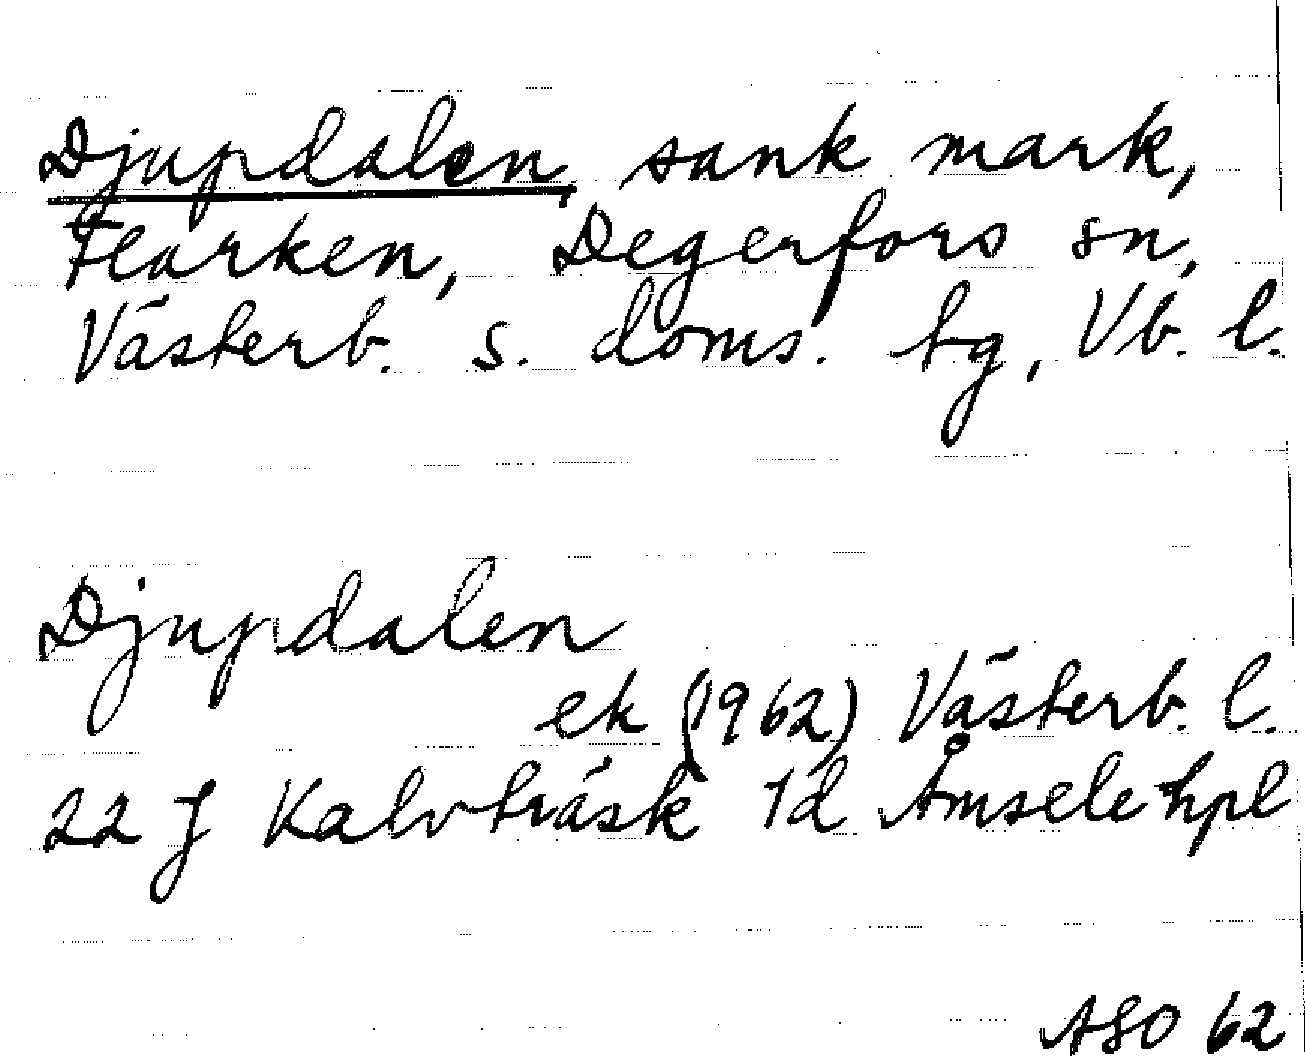 Djupdalen, sank mark,
Flarken, Degerfors sn,
Västerb. s. doms. tg, Vb. l.
Djupdalen
ek (1962) Västerb. l.
22 J Kalvträsk 1d Åmsele hpl
ASO 62